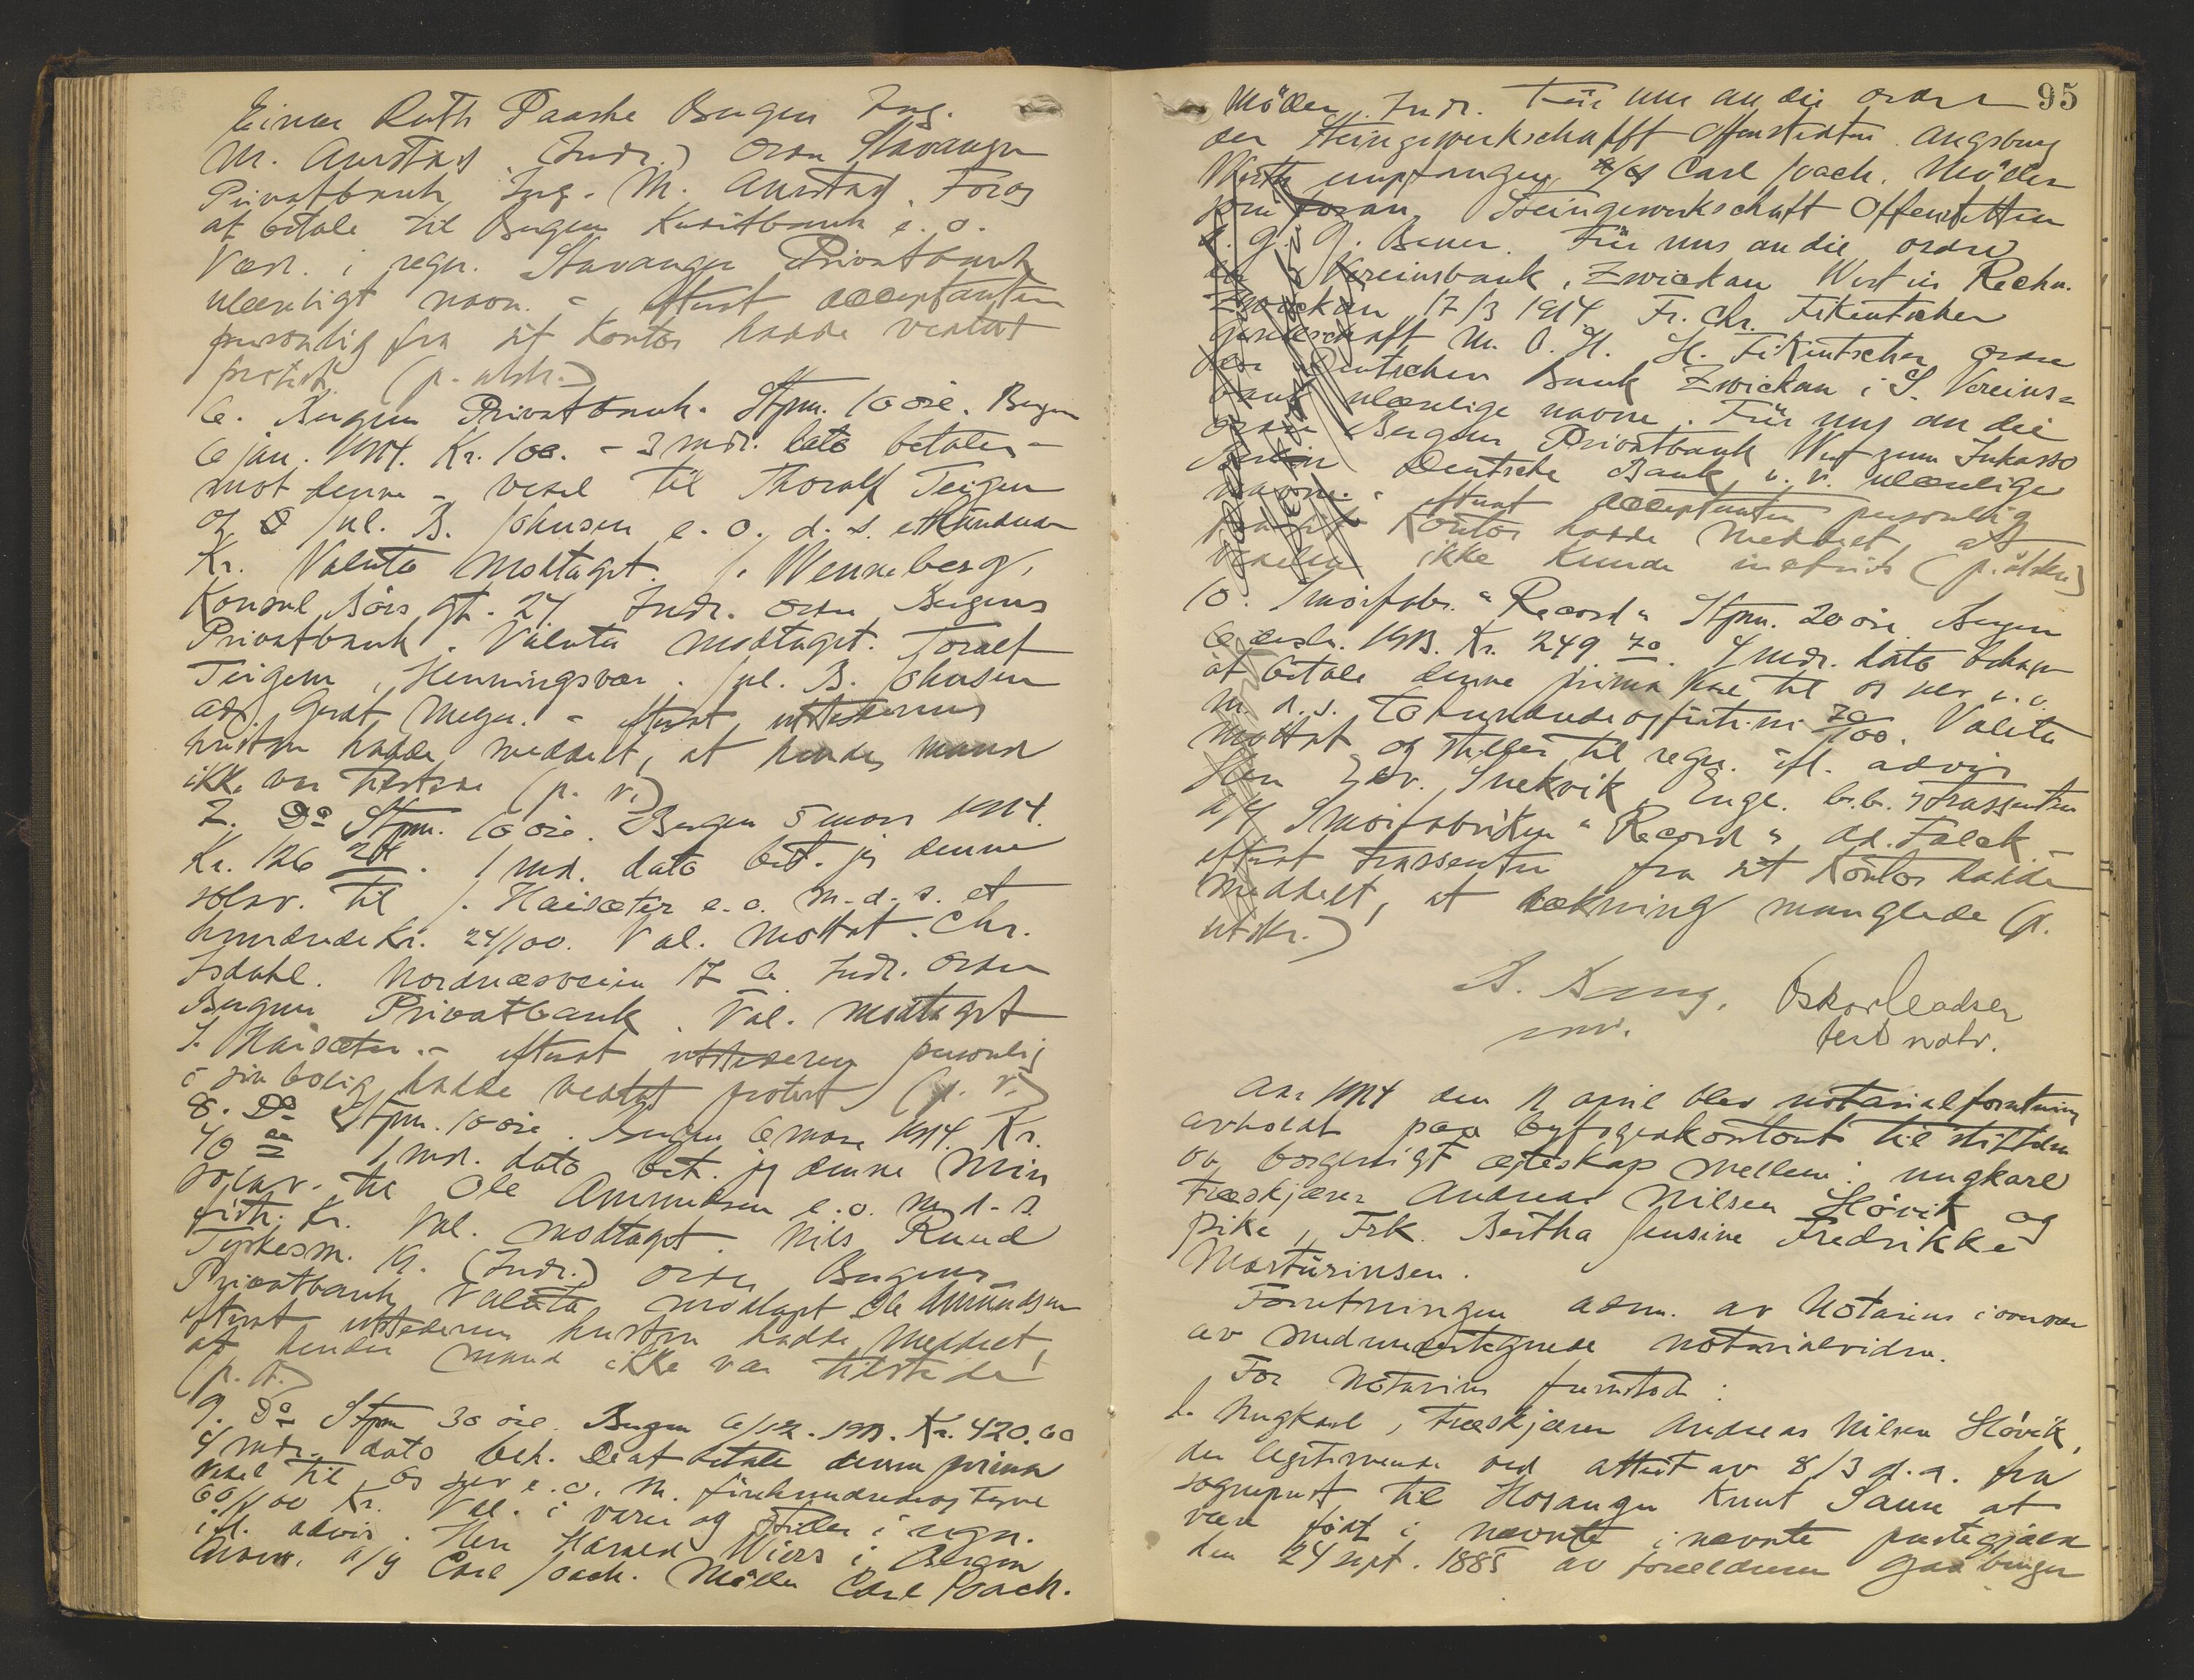 Einar Ruth Paaske Bergen Ing.
M. Aurstad (Indr.) Ordre Stavanger
Privatbank Ing. M. Aurstad. Forog
at betale til Bergens Kreditbank e. o.
Værd. i regn. Stavanger Privatbank
ulæseligt navn. - efterat acceptanten
personlig fra sit kontor hadde vedtat
protest (p. utstr.)
6. Bergens Privatbank. Stpm. 10 öre. Bergen
6 jan. 1914. Kr. 100. - 3 mdr. dato betales -
mot denne - veksel til Thoralf Teigen
og Jul. B. Johnsen e. o. d. s. ethundrede
Kr. Valuta modtaget. J. Wenneberg,
Konsul Börs gt. 24 Indr. ordre Bergens
Privatbank. Valuta modtaget. Toralf
Teigen, Henningsvær. Jul. B. Johnsen
adr. Gerdt Meyer. - efterat utstederens
hustru hadde meddelt, at hendes mand
ikke var tilstede (p. v.)
7. Do Stpm. 10 öre. Bergen 5 mars 1914.
Kr. 126 24. 1 md. dato bet. jeg denne
solav. til J. Haisæter e. o. m. d. s. et
hundrede Kr. 24/100. Val. mottat. Chr.
Isdahl. Nordnæsveien 17 b. Indr. Ordre
Bergens Privatbank. Val. modtaget
J. Haisæter. - efterat utstederen personlig
i sin bolig hadde vedtat protest (p. v.)
8. Do Stpm. 10 öre. Bergen 6 mars 1914. Kr.
40 00 1 md. dato bet. jeg denne min
solav. til Ole Ammundsen e. o. m. d. s.
firti Kr. Val. modtaget. Nils Ruud
Tyskesm. 19. (Indr.) ordre Bergens
Privatbank Valuta modtaget Ole Amundsen
efterat utstederens hustru hadde meddelt,
at hendes mand ikke var tilstede
(p. v.)
9. Do Stpm 30 öre. Bergen 6/12. 1913. Kr. 420.60
4 mdr. dato beh. De at betale denne prima
veksel til os selv e. o. m. firehundredeogtyve
60/100 Kr. Val. i varer og stilles i regn.
ifl. advis. Herr Harald Wiers i Bergen
Carl Joach. Möller Carl Joach.
95
Möller. Indr. Für uns an die ordre
der Steingewerkschafft Offenstetten Augsburg
Werth empfangen Carl Joach. Möller
som foran. Steingewerkschaft Offenstetten
Für uns an die ordre
der Vereinsbank, Zwickau Wert in Rechn.
Zwickau 17/3 1914 Fr. Chr. Fikentscher
m. b. H. H. Fikentscher ordre
der Deutschen Bank Zwickau i S. Vereins=
bank ulæselige navne. Für uns an die
ordre Bergens Privatbank Wert zum Inkasso
Berlin Deutsche Bank u. v. ulæselige
navne. - efterat acceptanten personlig
paa sit kontor hadde meddelt, at
vekselen ikke kunde indfries (p. utstr.)
10. Smörfabr. "Record" Stpm. 20 öre. Bergen
6 desbr. 1913. Kr. 249 70. 4 mdr. dato behager
at betale denne prima til os selv e. o.
m. d. s. Tohundredeogfirtini 70/100. Valuta
mottat og stilles til regn. ifl. advis
Herr Snekvik, Enge. b. b. Trassenten
a/s Smörfabriken "Record", Ad. Falck -
efterat trassenten fra sit kontor hadde
meddelt, at dækning manglede (p.
utstr.)
Oskar
not. vidn.
Aar 1914 den 11 april blev notarialforretning
avholdt paa byfogedkontoret til stiftelse
av borgerligt egteskap mellem: ungkarl
træskjærer Andreas Nilsen Hövik og
pike, Frk. Bertha Jensine Fredrikke
Martinsen.
Forretningen adm. av Notarius i overvær
av medundertegnede notarialvidne.
For Notarius fremstod:
1. Ungkarl, træskjærer Andreas Nilsen Hövik,
der legitimerede ved attest av 8/3 d. a. fra
sogneprest til Hosanger Knut Saure at
være födt i nævnte i nævnte prestegjæld
den 24 sept. 1885 av forældrene gaardbruger